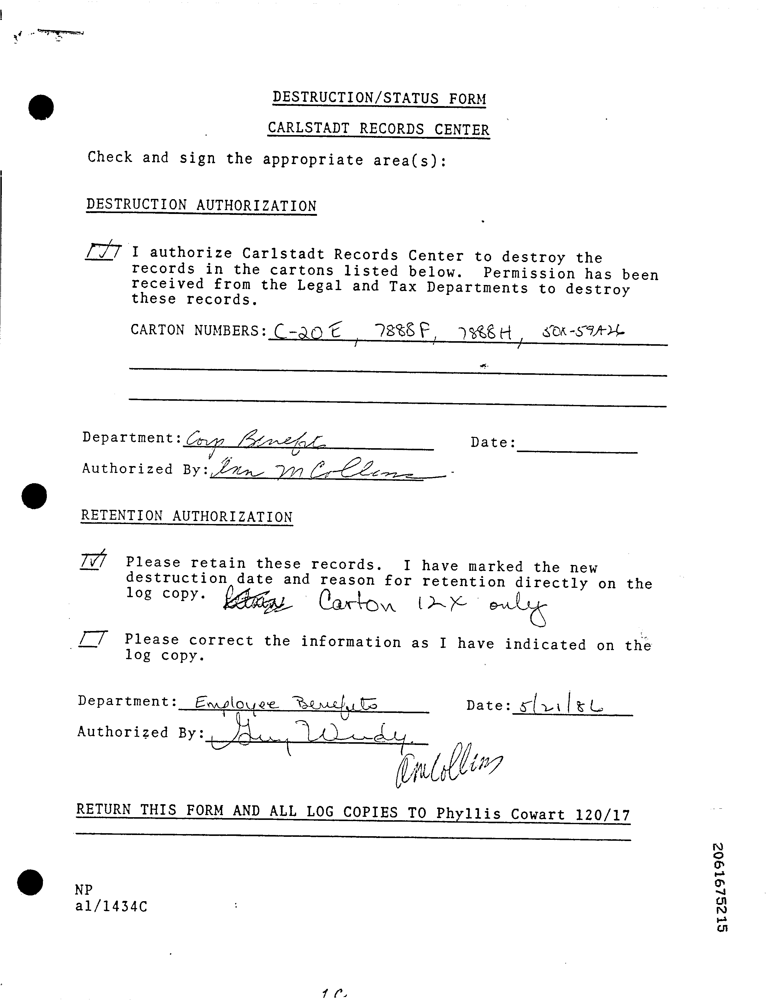 DESTRUCTION/STATUS FORM
CARLSTADT RECORDS CENTER
Check and sign the appropriate area(s):
DESTRUCTION AUTHORIZATION
I authorize Carlstadt Records Center to destroy the
records in the cartons listed below. Permission has been
received from the Legal and Tax Departments to destroy
these records.
CARTON NUMBERS: C-20E, 7888F, 7888H,
Department: Corp Benefits
Date:
Authorized By: Ann M Collins
RETENTION AUTHORIZATION
Please retain these records. I have marked the new
destruction date and reason for retention directly on the
log copy. Carton 12X only
Please correct the information as I have indicated on the
log copy.
Department: Employee Benefits Date: 5/21/86
Authorized By:
AMCollins
RETURN THIS FORM AND ALL LOG COPIES TO Phyllis Cowart 120/17
NP
al/1434C
2061675215